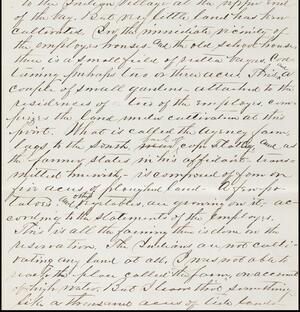 to the Indian Village at the upper end
of the bay. But very little land has been
cultivated. In the immediate vicinity of
the employes houses and the old school house
there is a small field of rutta bagas, Con-
taining perhaps two or three acres. This, a
couple of small gardens attached to the
residences of two of the employes, com-
prizes the land under cultivation at this
point. What is called the Agency farm,
lays to the South across the bay, and as
the farmer states in his affidavit here-
with, is composed of four or
five acres of ploughed land. A few po-
tatoes and other vegetables, are growing on it, ac-
cording to the statements of the Employes.
This is all the farming that is done on the
reservation. The Indians are not culti-
vating any land at all. I was not able to
reach the place called the farm, on account
of high water. But I learn that something
like a thousand acres of tide lands